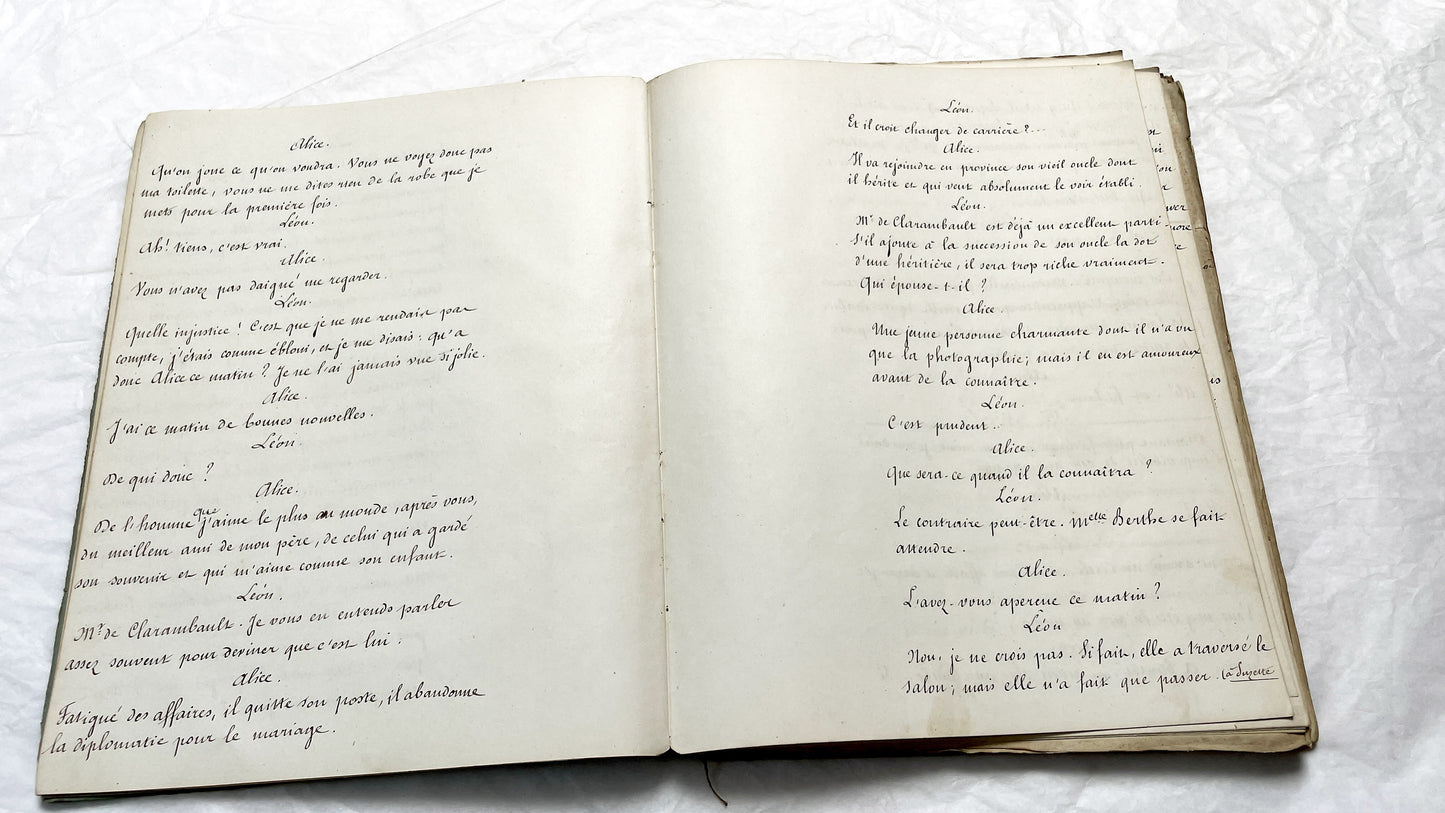 Alice.
Qu'on joue ce qu'on voudra. Vous ne voyez donc pas
ma toilette, vous ne me dites rien de la robe que je
mets pour la première fois.
Léon.
Ah! tiens, c'est vrai.
Alice.
Vous n'avez pas daigné me regarder.
Léon.
Quelle injustice! C'est que je ne me rendais pas
compte, j'étais comme ébloui, et je me disais: qu'a
donc Alice ce matin? Je ne l'ai jamais vue si jolie.
Alice.
J'ai ce matin de bonnes nouvelles.
Léon.
De qui donc?
Alice.
De l'homme que j'aime le plus au monde, après vous,
du meilleur ami de mon père, de celui qui a gardé
son souvenir et qui m'aime comme son enfant.
Léon.
Mr de Clarambault. Je vous en entends parler
assez souvent pour deviner que c'est lui.
Alice.
Fatigué des affaires, il quitte son poste, il abandonne
la diplomatie pour le mariage.
Léon.
Et il croit changer de carrière?...
Alice.
Il va rejoindre en province son vieil oncle dont
il hérite et qui veut absolument le voir établi.
Léon.
Mr de Clarambault est déjà un excellent parti
S'il ajoute à la succession de son oncle la dot
d'une héritière, il sera trop riche vraiment.
Qui épouse-t-il?
Alice.
Une jeune personne charmante dont il n'a vu
que la photographie; mais il en est amoureux
avant de la connaître.
Léon.
C'est prudent..
Alice.
Que sera-ce quand il la connaîtra?
Léon.
Le contraire peut-être. Melle Berthe se fait
attendre.
Alice.
L'avez-vous aperçue ce matin?
Léon
Non, je ne crois pas. Si fait, elle a traversé le
salon; mais elle n'a fait que passer. (à Suzette